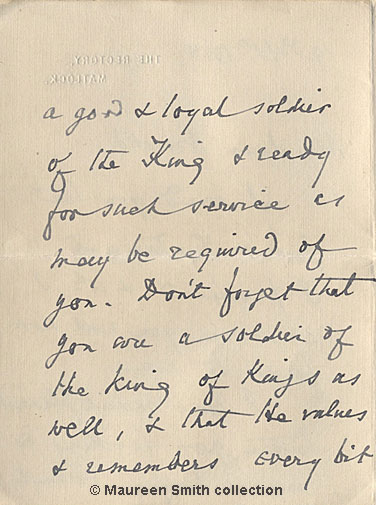 THE RECTORY,
MATLOCK.
a good & loyal soldier
of the King & ready
for such service as
may be required of
you. Don't forget that
you are a soldier of
the King of Kings as
well, & that He values
& remembers every bit
© Maureen Smith collection